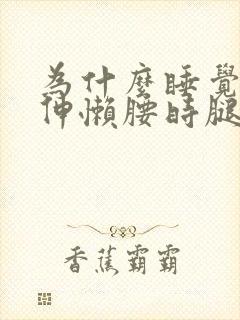 為什麼睡覺
伸懶腰時腿
香蕉霸霸